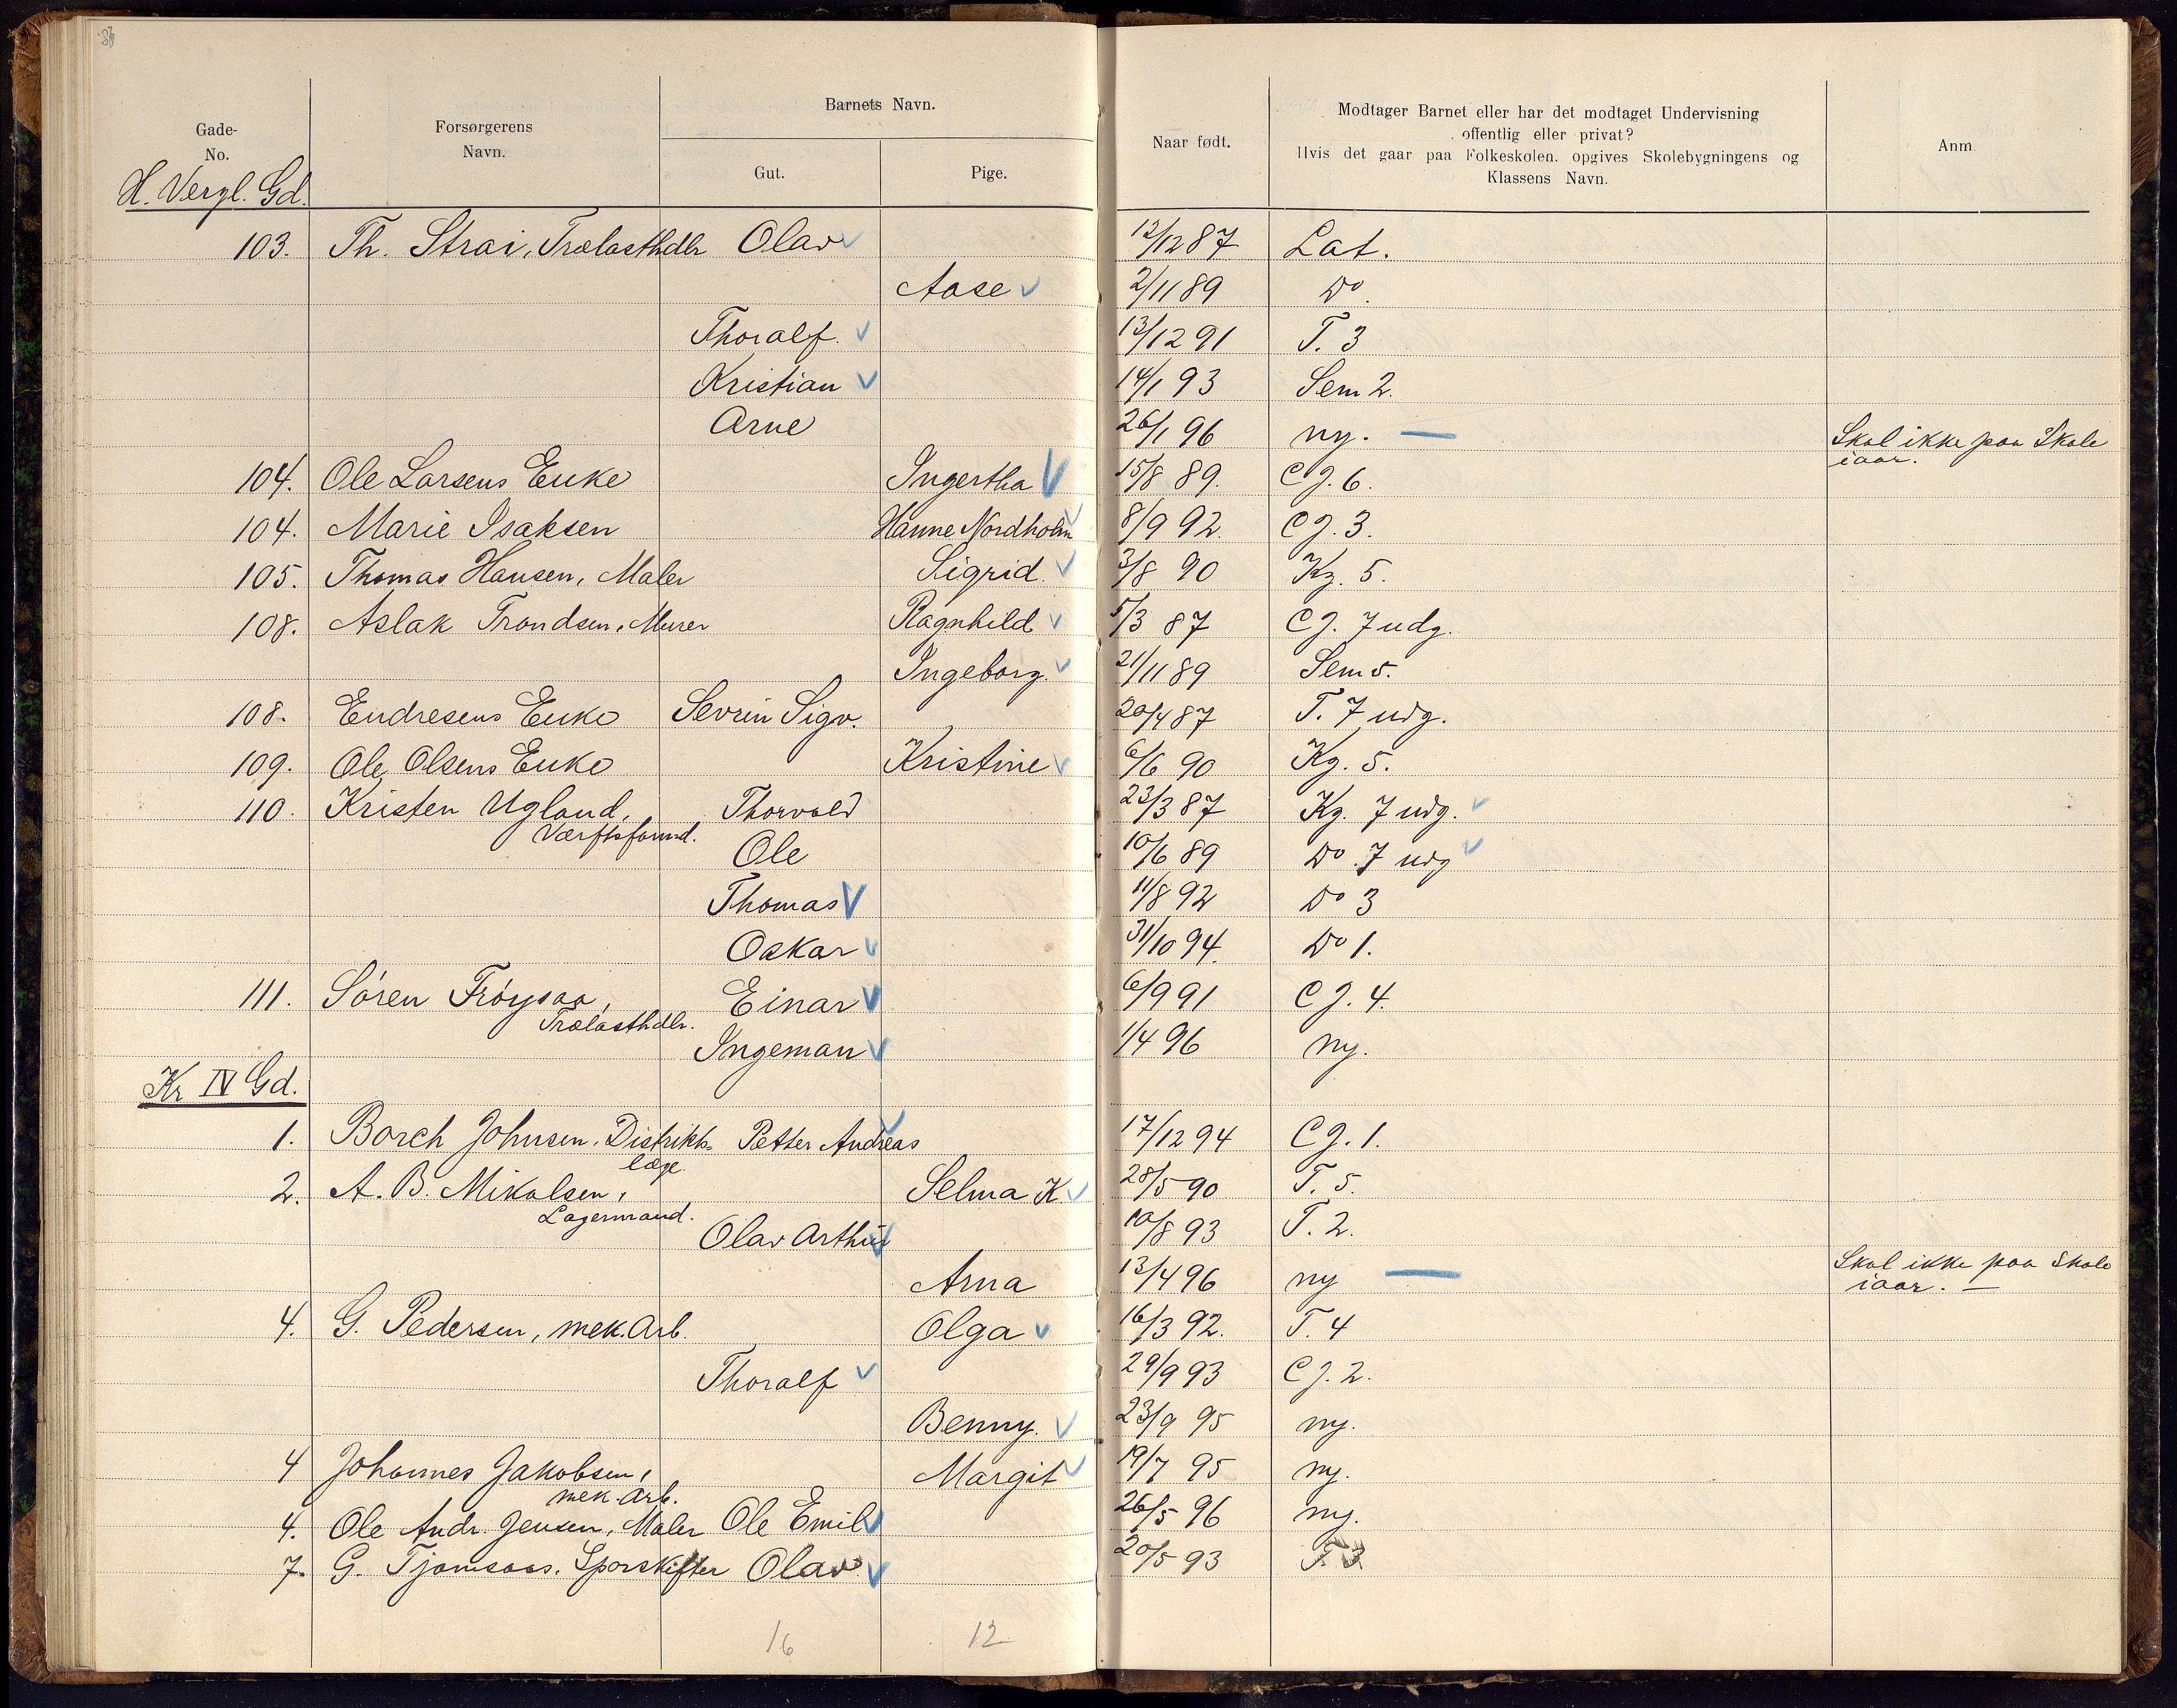 Gade-
No.
Forsørgerens
Navn.
Barnets Navn.
Gut.
Pige.
Naar født.
Modtager Barnet eller har det modtaget Undervisning
offentlig eller privat?
Hvis det gaar paa Folkeskolen. opgives Skolebygningens og
Klassens Navn.
Anm.
H. Vergl. Gd.
103. Th. Strai, Trælasthdlr Olav 12/12 87 Lat.
Aase 2/11 89 Do.
Thoralf. 13/12 91 T. 3
Kristian 14/1 93 Sem 2.
Arne 26/1 96 ny. — Skal ikke paa Skole
iaar.
104. Ole Larsens Enke Ingertha 15/8 89. CJ. 6.
104. Marie Isaksen Hanne Nordholm 8/9 92. CJ. 3.
105. Thomas Hansen, Maler Sigrid. 3/8 90 Kg. 5.
108. Aslak Trondsen, Murer Ragnhild 5/3 87 CJ. 7 udg.
Ingeborg. 21/11 89 Sem 5.
108. Endresens Enke Sevrin Sigv. 20/4 87 T. 7 udg.
109. Ole Olsens Enke Kristine 6/6 90 Kg. 5.
110. Kristen Ugland, Thorvald 23/3 87 Kg. 7 udg.
Værftsformd.
Ole 10/6 89 Do. 7 udg
Thomas 11/8 92 Do 3
Oskar 31/10 94. Do 1.
111. Sören Fröysaa, Einar 6/9 91 CJ. 4.
Trælasthdlr.
Ingeman 1/4 96 ny.
Kr IV Gd.
1. Borch Johnsen, Distrikts- Petter Andreas 17/12 94 CJ. 1.
læge
2. A. B. Mikalsen, Selma K. 28/5 90 T. 5.
Lagermand.
Olav Arthur 10/8 93 T. 2.
Arna 13/4 96 ny — Skal ikke paa Skole
iaar. —
4. G. Pedersen, mek. Arb. Olga 16/3 92. T. 4
Thoralf 29/9 93 CJ. 2.
Benny. 23/9 95 ny.
4 Johannes Jakobsen, Margit 19/7 95 ny.
mek. Arb.
4. Ole Andr. Jensen, Maler Ole Emil 26/5 96 ny.
7. G. Tjomsaas. Sporskifter Olav 20/5 93 T. 3.
16 12